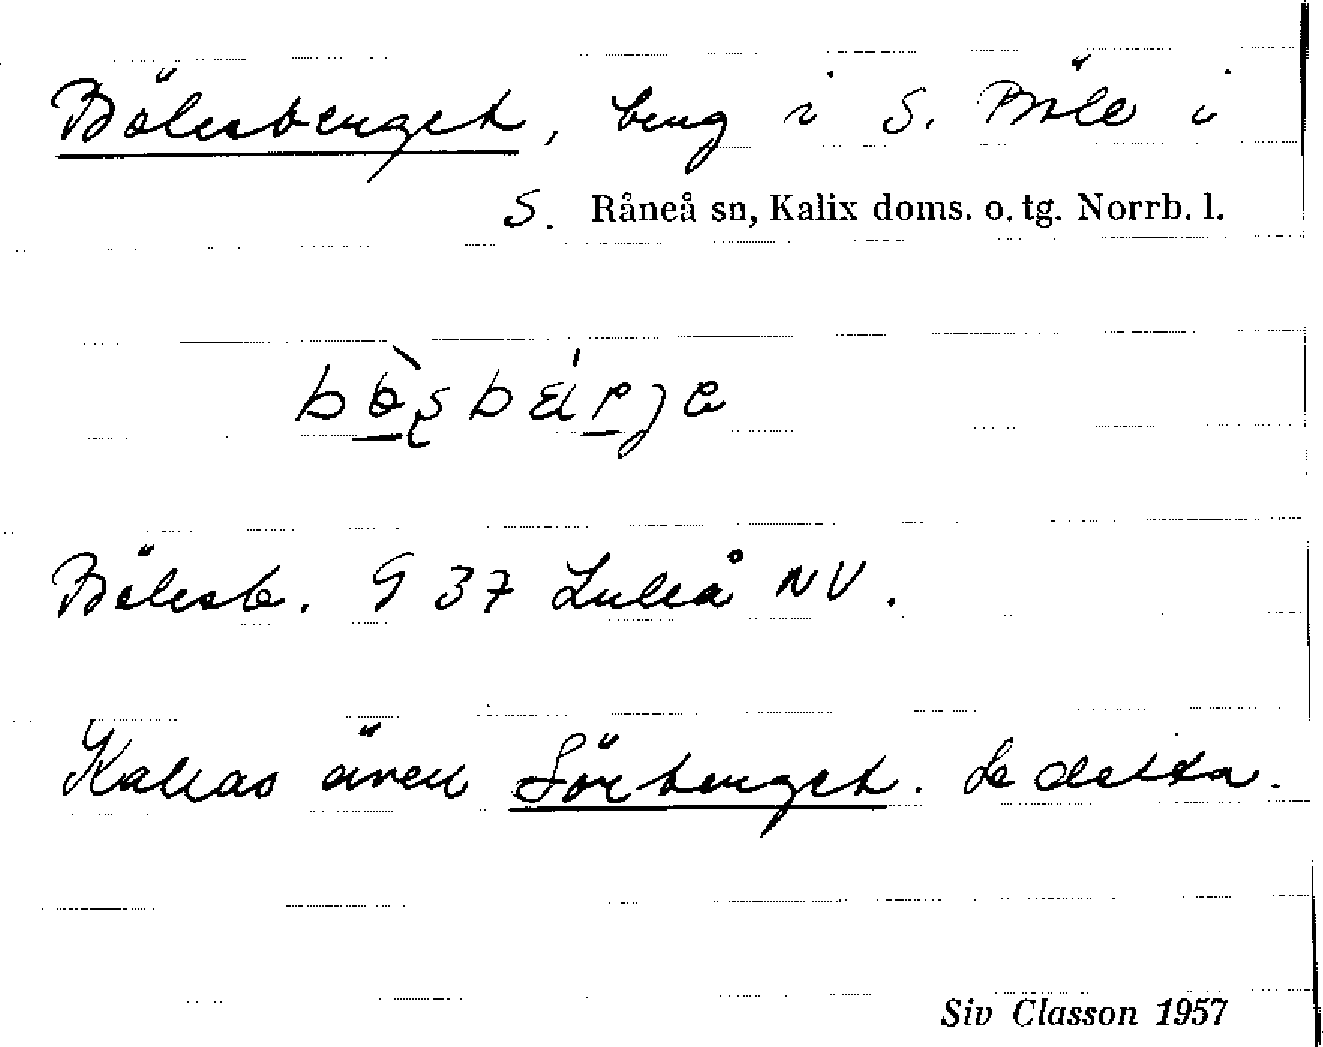 Bölesberget, berg i S. Böle i
S. Råneå sn, Kalix doms. o. tg. Norrb. l.
Bölesb. 9 37 Luleå NV.
Kallas även Sörberget. Se detta.
Siv Classon 1957